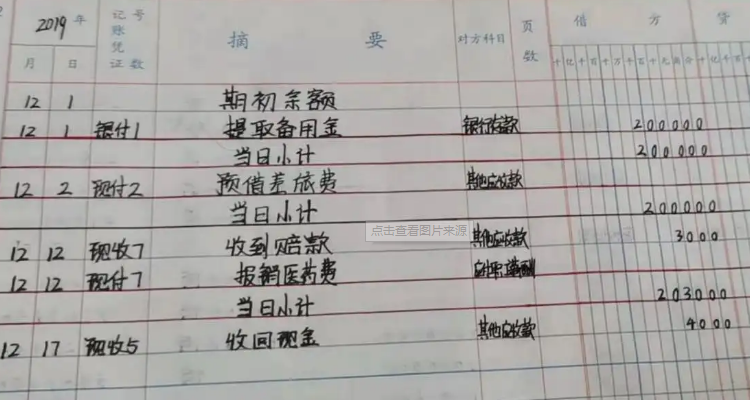 2019 年 记号账凭证数 摘 要 对方科目 页数 借 方 贷
月 日 十亿千百十万千百十元角分十亿千百
12 1 期初余额
12 1 银付1 提取备用金 银行存款 200000
当日小计 200000
12 2 现付2 预借差旅费 其他应收款
当日小计 200000
点击查看图片来源
12 12 现收7 收到赔款 其他应收款 3000
12 12 现付7 报销医药费
当日小计 203000
12 17 现收5 收回现金 其他应收款 4000